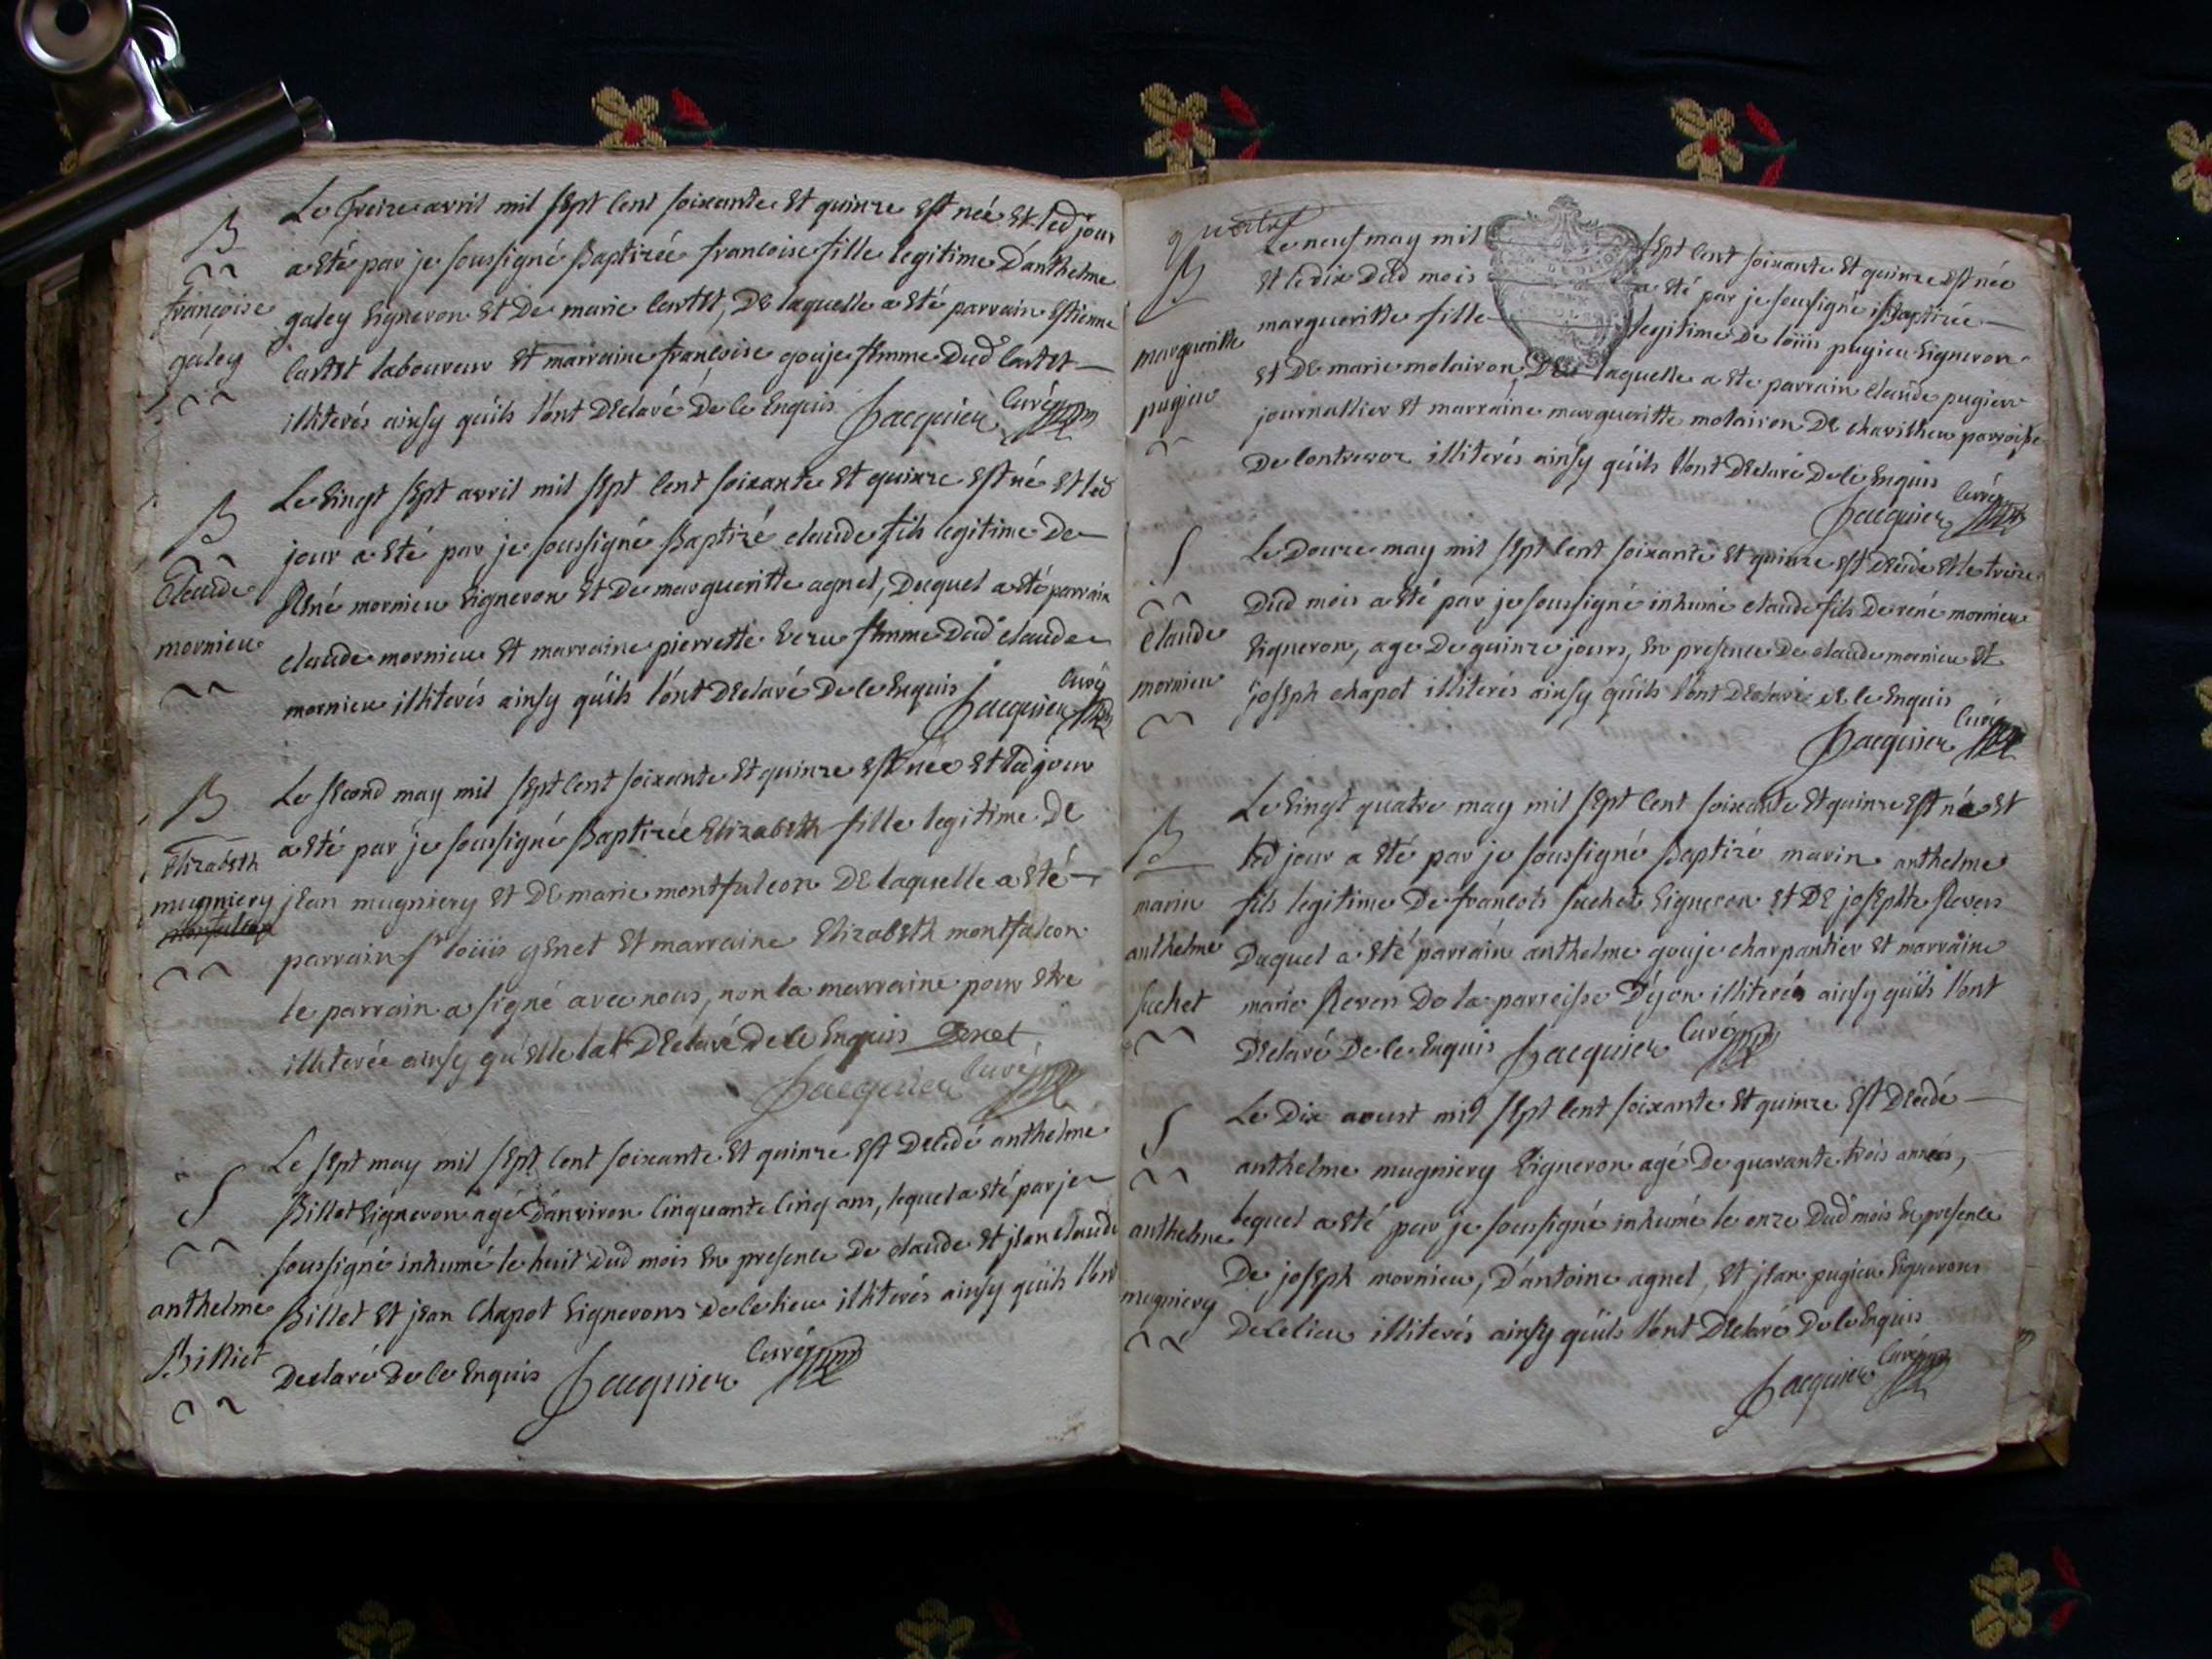 Le treize avril mil sept cent soixante et quinze est née et led jour
B
a été par je soussigné Baptizée francoise fille legitime D'anthelme
françoise
galey vigneron et De marie Cartet, De laquelle a été parrain Estienne
galey
Cartet laboureur et marraine francoise gouje femme Dud Cartet
illiterés ainsy qu'ils l'ont Declaré De ce Enquis Jacquier Curé
Le vingt sept avril mil sept cent soixante et quinze est né et led
B
jour a été par je soussigné Baptizé claude fils legitime De
Claude
René mornieu vigneron et De margueritte agnel, Duquel a été parrain
mornieu
claude mornieu et marraine pierrette femme Dud claude
mornieu illiterés ainsy qu'ils l'ont Declaré De ce Enquis Jacquier Curé
Le second may mil sept cent soixante et quinze est née et led jour
B
a été par je soussigné Baptizée Elizabeth fille legitime De
Elizabeth
mugniery
jean mugniery et De marie montfalcon De laquelle a été
parrain sr loüis genet et marraine Elizabeth montfalcon
le parrain a signé avec nous, non la marraine pour etre
illiterée ainsy qu'elle la Declaré De ce Enquis Genet
Jacquier Curé
Le sept may mil sept cent soixante et quinze est Decedé anthelme
S
Billet vigneron agé D'anviron cinquante cinq ans, lequel a été par je
soussigné inhumé le huit Dud mois En presence De claude et jean claude
anthelme
Billet et jean Chapot vignerons De ce lieu illiterés ainsy qu'ils l'ont
Billiet
Declaré De ce Enquis Jacquier Curé
Le neuf may mil sept cent soixante et quinze est née
B
et le dix Dud mois a été par je soussigné Baptizée
margueritte
margueritte fille legitime De loüis pugieu vigneron
pugieu
et De marie molairon, De laquelle a été parrain claude pugieu
journallier et marraine margueritte molairon De parroisse
De illiterés ainsy qu'ils l'ont Declaré De ce Enquis
Jacquier Curé
Le Douze may mil sept cent soixante et quinze est Decedé et le treize
S
Dud mois a été par je soussigné inhumé claude fils De rené mornieu
Claude
vigneron, age De quinze jours, En presence De claude mornieu et
mornieu
joseph chapot illiterés ainsy qu'ils l'ont Declaré de ce Enquis
Jacquier Curé
Le vingt quatre may mil sept cent soixante et quinze est né et
B
led jour a été par je soussigné Baptizé marin anthelme
marin
fils legitime De francois suchet vigneron et De josephte Reven
anthelme
Duquel a été parrain anthelme gouje charpantier et marraine
suchet
marie Reven De la parroisse D'yon illiterés ainsy qu'ils l'ont
Declaré De ce Enquis Jacquier Curé
Le Dix aoust mil sept cent soixante et quinze est Decedé
S
anthelme mugniery vigneron agé De quarante trois années,
anthelme
lequel a été par je soussigné inhumé le onze Dud mois En presence
mugniery
De joseph mornieu, D'antoine agnel, et jean pugieu vignerons
De ce lieu illiterés ainsy qu'ils l'ont Declaré De ce Enquis
Jacquier Curé